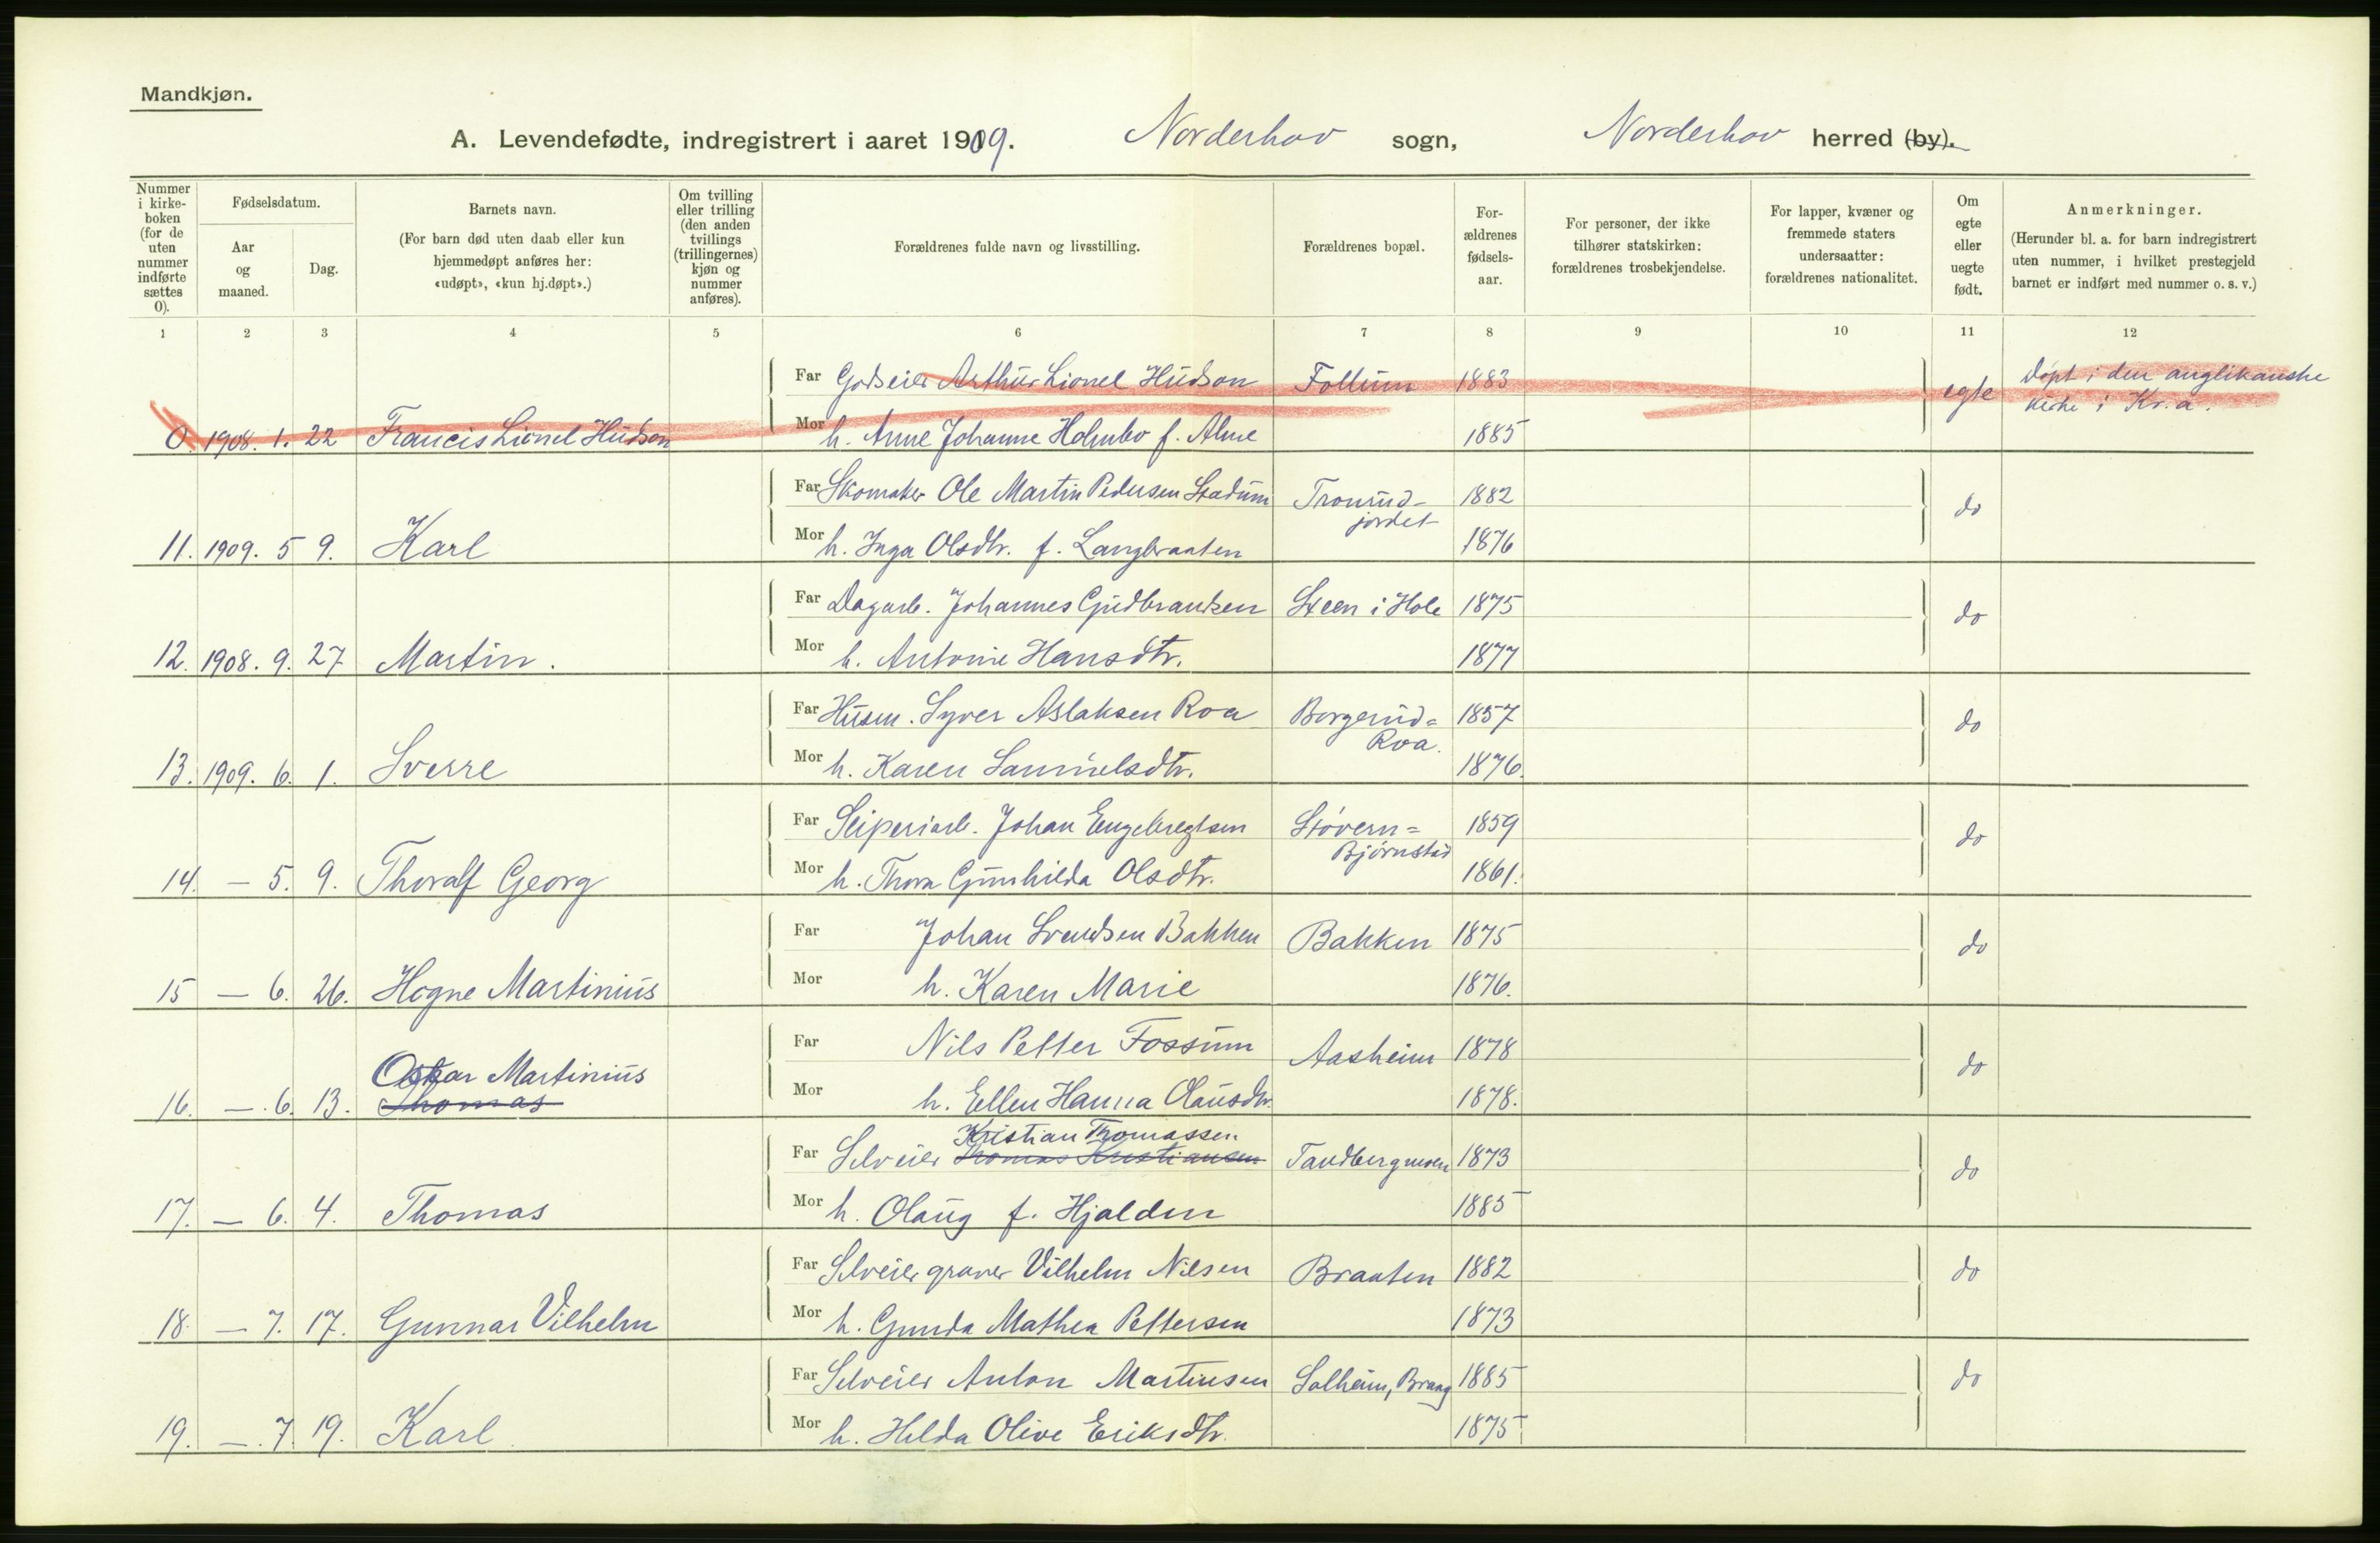 Mandkjøn.
A. Levendefødte, indregistrert i aaret 1909. Norderhov sogn, Norderhov herred (by).
Nummer i kirke-boken (for de uten nummer indførte sættes 0).
Fødselsdatum.
Aar og maaned.
Dag.
Barnets navn.
(For barn død uten daab eller kun hjemmedøpt anføres her: «udøpt», «kun hj.døpt».)
Om tvilling eller trilling (den anden tvillings (trillingernes) kjøn og nummer anføres).
Forældrenes fulde navn og livsstilling.
Forældrenes bopæl.
For-ældrenes fødsels-aar.
For personer, der ikke tilhører statskirken: forældrenes trosbekjendelse.
For lapper, kvæner og fremmede staters undersaatter: forældrenes nationalitet.
Om egte eller uegte født.
Anmerkninger.
(Herunder bl. a. for barn indregistrert uten nummer, i hvilket prestegjeld barnet er indført med nummer o. s. v.)
1 2 3 4 5 6 7 8 9 10 11 12
Far Godseier Arthur Lionel Hudson Follum 1883 egte Døpt i den anglikanske kirke i Kr.a.
0. 1908. 1. 22 Francis Lionel Hudson Mor h. Anne Johanne Holmbo f. Alme 1885
Far Skomaker Ole Martin Pedersen Stadum Tronrud-jordet 1882 do
11. 1909. 5 9. Karl Mor h. Inga Olsdtr. f. Langbraaten 1876
Far Dagarb. Johannes Gudbrandsen Steen i Hole 1875 do
12. 1908. 9. 27 Martin. Mor h. Antonie Hansdtr. 1877
Far Husm. Syver Aslaksen Roa Borgerud= Roa. 1857 do
13. 1909. 6. 1. Sverre Mor h. Karen Samuelsdtr. 1876.
Far Sliperiarb. Johan Engebregtsen Støvern= Bjørnstad 1859 do
14. — 5. 9. Thoralf Georg Mor h. Thora Gunhilda Olsdtr. 1861.
Far Johan Svendsen Bakken Bakken 1875 do
15 — 6. 26. Hogne Martinius Mor h. Karen Marie 1876.
Far Nils Petter Fossum Aasheim 1878 do
Oskar Martinius
16. — 6. 13. Thomas Mor h. Ellen Hanna Olausdtr. 1878.
Kristian Thomassen
Far Selveier Thomas Kristiansen Tandbergmoen 1873 do
17. — 6. 4. Thomas Mor h. Olaug f. Hjalden 1885
Far Selveier graver Vilhelm Nilsen Braaten 1882 do
18. — 7. 17. Gunnar Vilhelm Mor h. Gunda Mathea Pettersen 1873
Far Selveier Anton Martinsen Solheim, Braag 1885 do
19. — 7. 19. Karl Mor h. Hilda Olive Eriksdtr. 1875